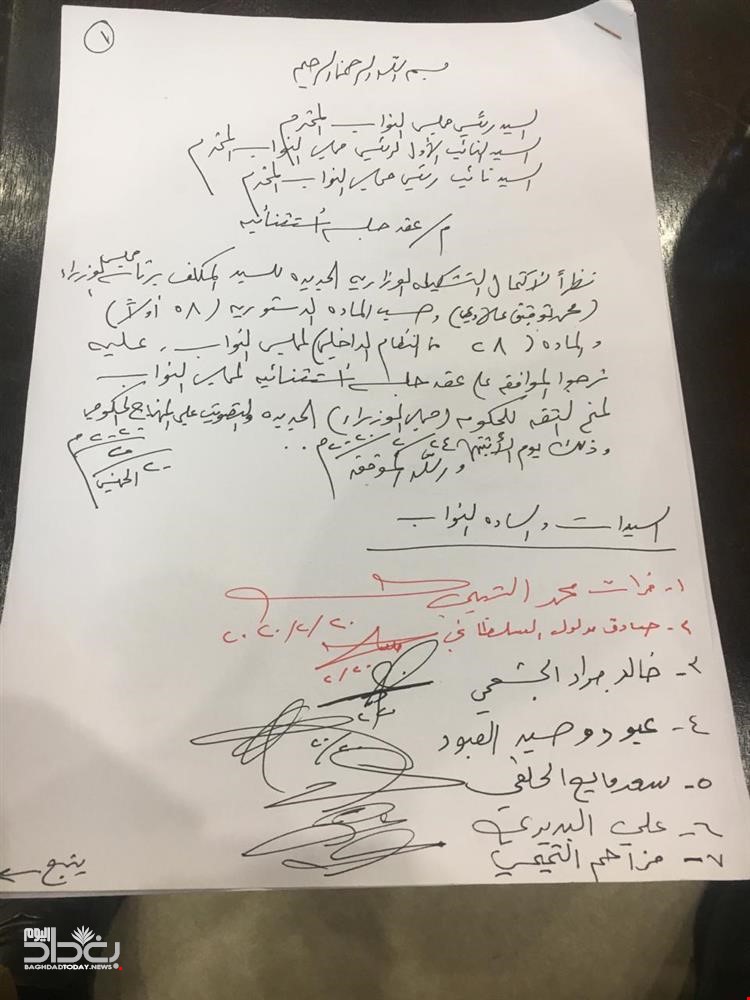 ١
بسم الله الرحمن الرحيم
السيد رئيس مجلس النواب المحترم
السيد النائب الأول لرئيس مجلس النواب المحترم
السيد نائب رئيس مجلس النواب المحترم
م/ عقد جلسة أستثنائية
نظراً لأكتمال التشكيله الوزاريه الجديده للسيد المكلف برئاسة مجلس الوزراء
(محمد توفيق علاوي) وحسب الماده الدستوريه (٥٨ أولاً)
والماده (٢٨ من النظام الداخلي) لمجلس النواب، عليه
نرجوا الموافقه على عقد جلسة أستثنائيه لمجلس النواب
لمنح الثقه للحكومه (مجلس الوزراء) الجديده والتصويت على المنهاج الحكومي
وذلك يوم الأثنين ٢٤/٢/٢٠٢٠م ..
والله الموفق
٢٠٢٠م
٢٠
الخميس
السيدات والساده النواب
١- فرات محمد التميمي
٢- صادق مدلول السلطاني ٢٠٢٠/٢/٢٠
٢/٢٠
٣- خالد جواد الجشعمي
٤- عبود وحيد العبود
٥- سعد مايع الحلفي
٦- علي البديري
٧- مزاحم التميمي
يتبع
بغداد اليوم
BAGHDADTODAY.NEWS